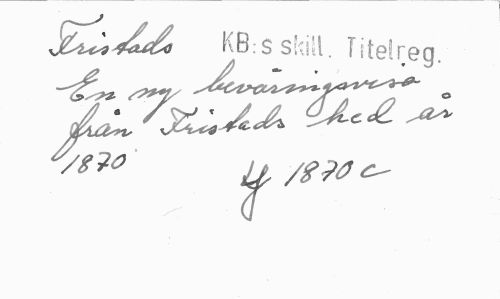 Fristads KB:s skill. Titelreg.
En ny beväringsvisa
från Fristads hed år
1870
1870 c